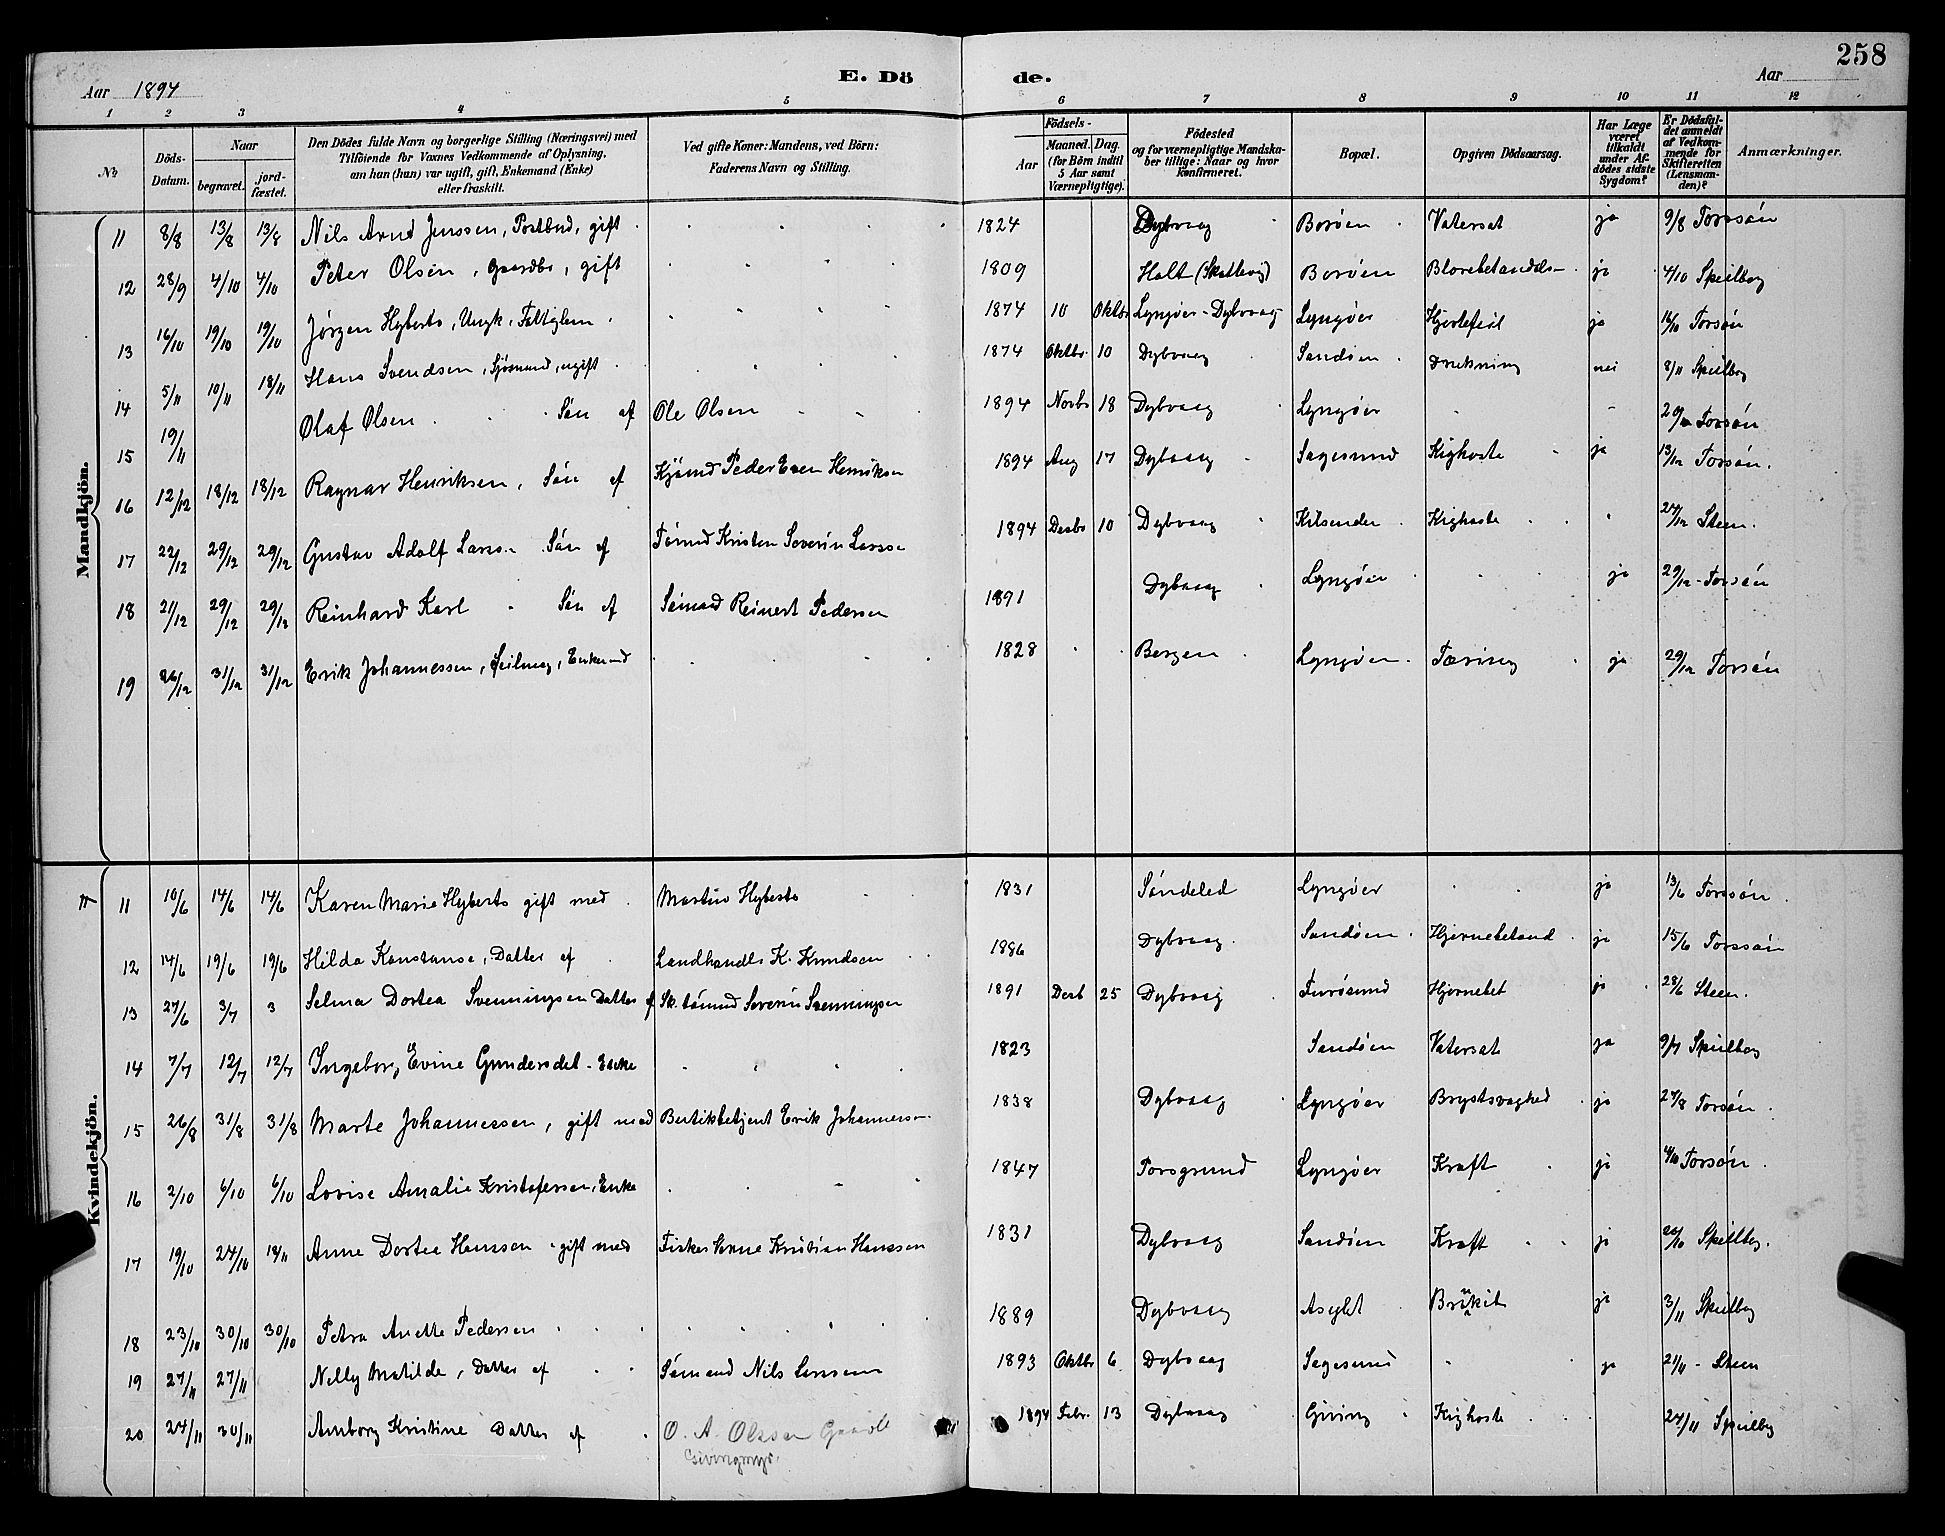 258
Aar 1894 E. Dö de. Aar
1 2 3 4 5 6 7 8 9 10 11 12
№
Döds-Datum.
Naar
begravet.
jord-fæstet.
Den Dödes fulde Navn og borgerlige Stilling (Næringsvei) med
Tilföiende for Voxnes Vedkommende af Oplysning,
om han (hun) var ugift, gift, Enkemand (Enke)
eller fraskilt.
Ved gifte Koner: Mandens, ved Börn:
Faderens Navn og Stilling.
Födsels-
Aar
Maaned. Dag.
(for Börn indtil
5 Aar samt
Værnepligtige).
Födested
og for værnepligtige Mandska-
ber tillige: Naar og hvor
konfirmeret.
Bopæl.
Opgiven Dödsaarsag.
Har Læge
været
tilkaldt
under Af-
dödes sidste
Sygdom?
Er Dödsfal-
det anmeldt
af Vedkom-
mende for
Skifteretten
(Lensman-
den)?
Anmærkninger.
Mandkjön.
11 8/8 13/8 13/8 Nils Arnt Jenssen, Postbud, gift 1824 Dybvaag Borøen Vatersot ja 9/8 Torssøn
12 28/9 4/10 4/10 Peter Olsen, Gaardbr, gift 1809 Holt Borøen ja 4/10 Speilbog
13 16/10 19/10 19/10 Jørgen Hyberts, Ungk. 1874 10 Oktbr Lyngøer - Dybvaag Lyngøer Hjertefeil ja 16/10 Torsøn
14 5/11 10/11 18/11 Hans Svendsen, Sjømand, ugift 1874 Oktbr. 10 Dybvaag Sandøen Drukning nei 8/11 Speilbog
15 19/11 Olaf Olsen Søn af Ole Olsen 1894 Novbr 18 Dybvaag Lyngøer Torsøn
16 12/12 18/12 18/12 Ragnar Henriksen, Søn af Peder Even Henriksen 1894 Aug 17 Dybvaag Sagesund Kighoste ja 13/12 Torsøn.
17 22/12 29/12 29/12 Gustav Adolf Larse. Søn af Tømmd Kristen Severin Larsse 1894 Desbr 10 Dybvaag Kilsenden Kighoste 27/12 Steen.
18 21/12 29/12 29/12 Reinhard Karl Søn af Sømand Reinert Pedersen 1891 Dybvaag Lyngøer ja 29/12 - Torsøn
19 26/12 31/12 31/12 Erik Johannessen, Seilmag, Enkemd 1828 Bergen Lyngøer Tæring ja 29/12 Torsøn
Kvindekjön.
11 10/6 14/6 14/6 Karen Marie Hyberts gift med Martin Hyberts 1831 Søndeled Lyngøer ja 13/6 Torssøn.
12 14/6 19/6 19/6 Hilda Konstanse, Datter af Landhandlr K. Knudsen 1886 Dybvaag. Sandøen Hjernebetænd ja 15/6 Torssøn
13 27/6 3/7 3 Selma Dortea Svenningsen Datter af Sk. tømmd Severin Svenningsen 1891 Desb 25 Dybvaag Furøsund Hjernebet ja 28/6 Steen.
14 7/7 12/7 12/7 Ingeborg Evine Gundersdat - Enke 1823 Sandøen Vatersot ja 9/7 Speilbog
15 26/8 31/8 31/8 Marte Johannessen, gift med Erik Johannesse 1838 Dybvaag Lyngøer Brystsvaghed ja 27/8 Torsøn.
16 2/10 6/10 6/10 Lovise Amalie Kristofersen, Enke 1847 Porsgrund Lyngøer Kræft ja 4/10 Torsøn.
17 19/10 24/10 18/11 Anne Dortea Hanssen - gift med Fisker Kristian Hanssen 1831 Dybvaag Sandøen Kræft ja 20/10 Speilbog.
18 23/10 30/10 30/10 Petra Anette Pedersen 1889 Dybvaag Asylet ja 3/11 Speilbog
19 27/11 27/11 Nelly Matilde, Datter af Sømand Nils Larssen 1893 Oktbr 6 Dybvaag Sagesund ja 21/11 - Steen
20 24/11 30/11 Amborg Kristine Datter af O. A. Olssen Gaardb
Givingmyr. 1894 Febr. 13 Dybvaag Giving Kighoste 24/11 Speilbog